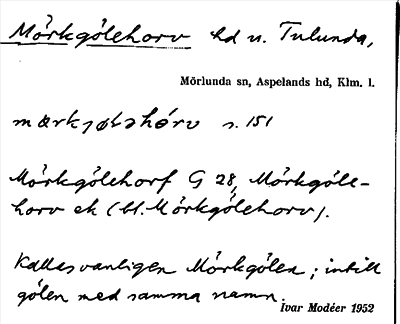 Mörkgölehorv hd u. Tulunda,
Mörlunda sn, Aspelands hd, Klm. l.
mœrkȷøləhórv s. 151
Mörkgölehorf G 28, Mörkgöle-
horv ek (bl. Mörkgölehorv).
Kallas vanligen Mörkgölen; intill
gölen med samma namn.
Ivar Modéer 1952